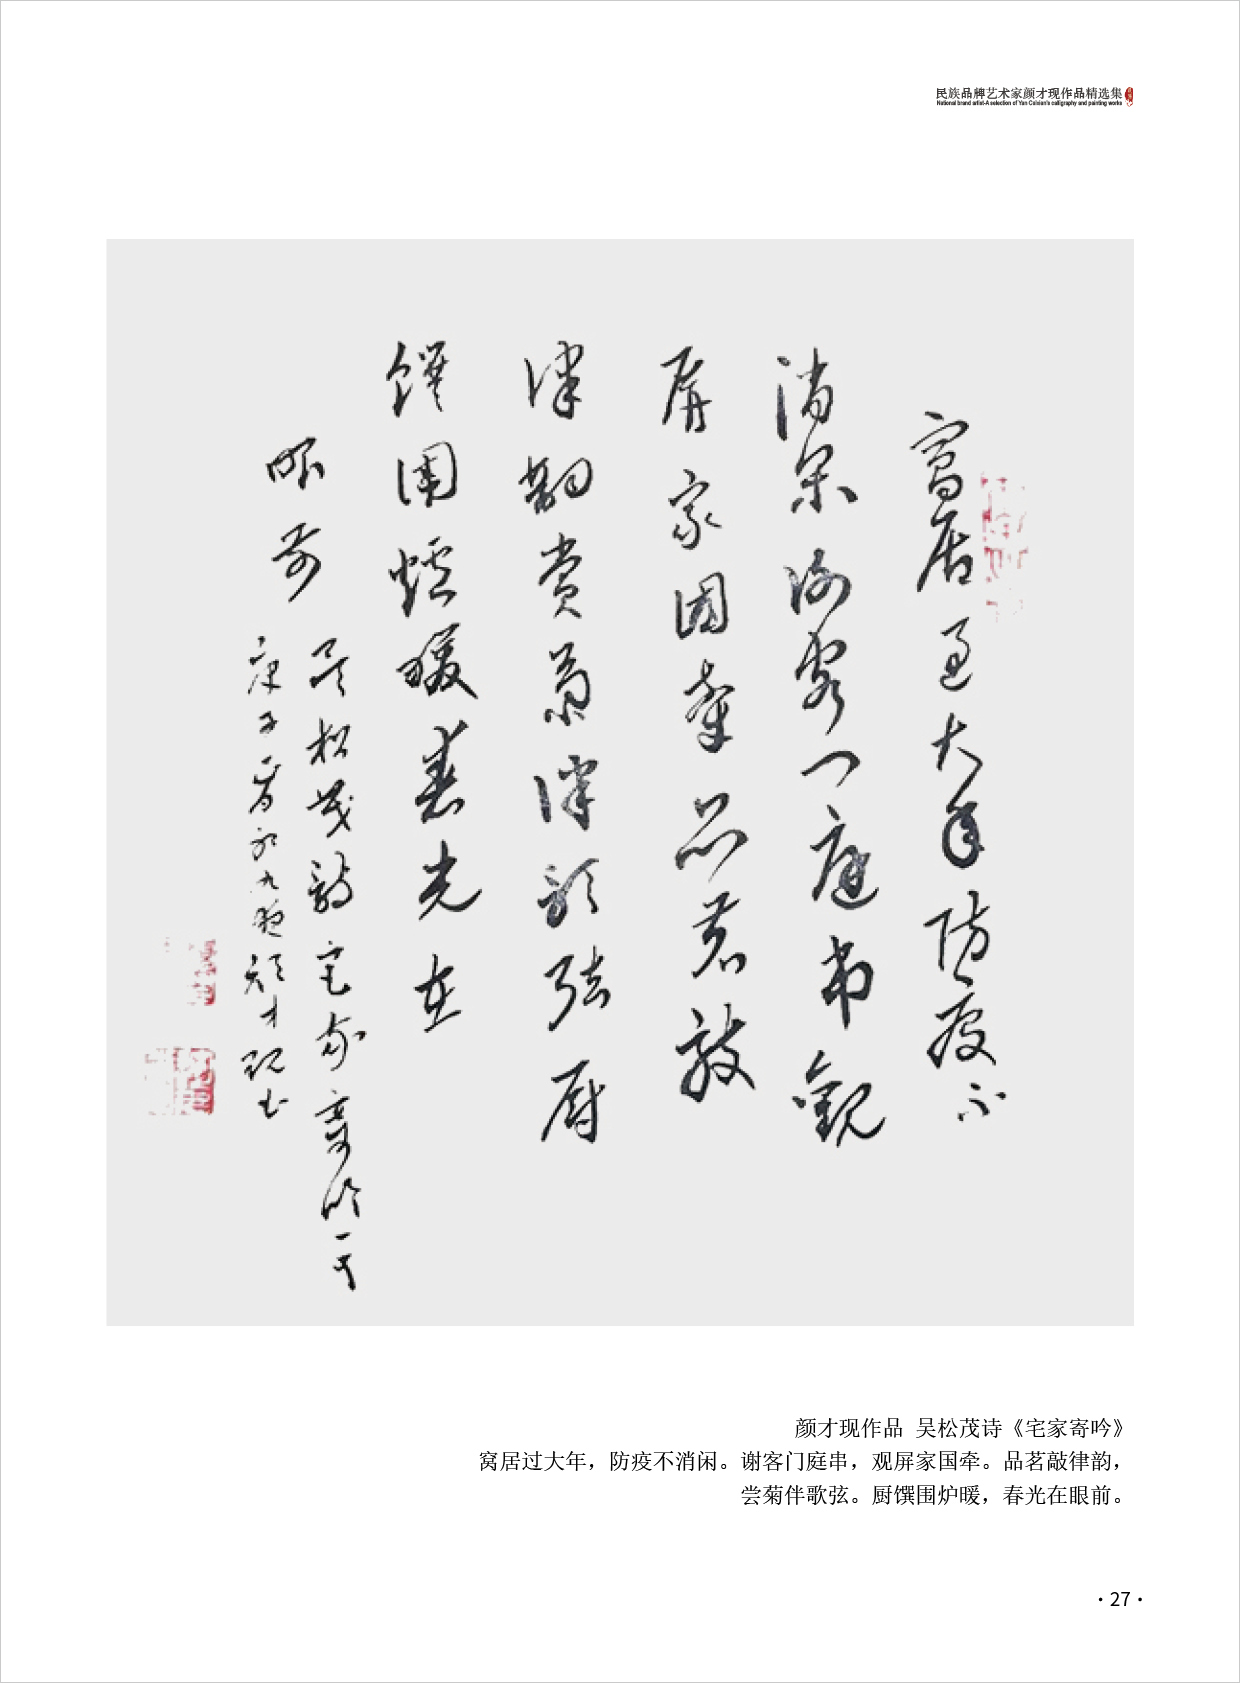 民族品牌艺术家颜才现作品精选集
National brand artist-A selection of Yan Caixian's calligraphy and painting works
窝居过大年防疫不
消闲谢客门庭串观
屏家国牵品茗敲
律韵赏菊伴歌弦厨
馔围炉暖春光在
眼前
吴松茂诗宅家寄吟一首
庚子春初九晚颜才现书
颜才现作品 吴松茂诗《宅家寄吟》
窝居过大年，防疫不消闲。谢客门庭串，观屏家国牵。品茗敲律韵，
尝菊伴歌弦。厨馔围炉暖，春光在眼前。
·27·